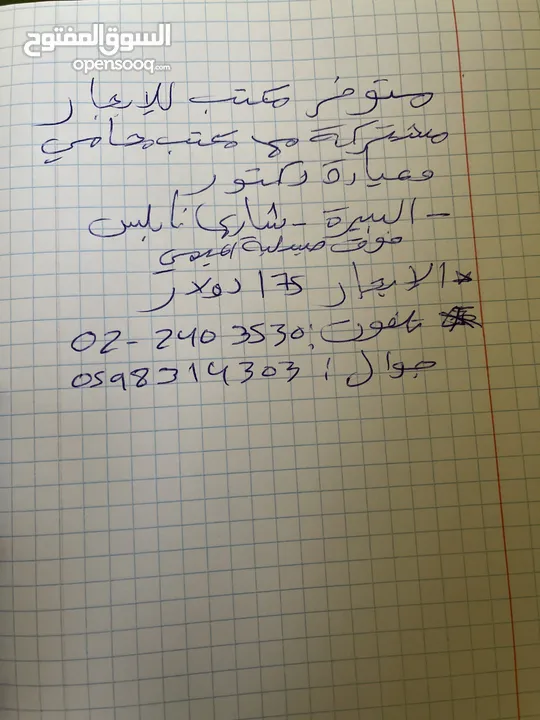 السوق المفتوح
opensooq.com
متوفر مكتب للايجار
مشتركة مع مكتب محامي
وعيادة دكتور
- البيرة - شارع نابلس
فوق صيدلية
* الايجار 175 دولار
تلفون: 02-240 3530
جوال: 0598314303